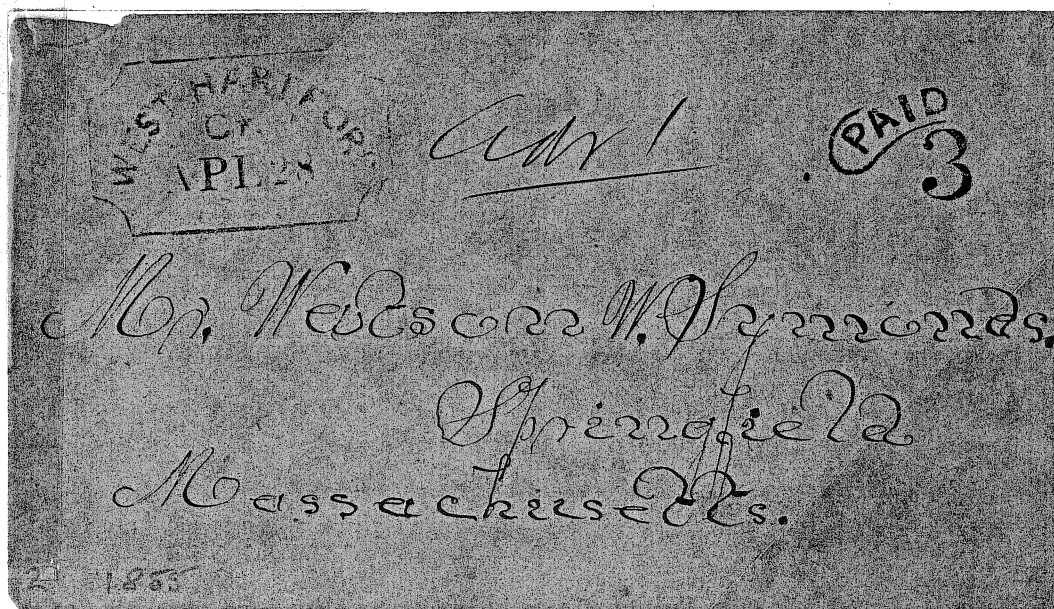 WEST HARTFORD
CT.
APL 28
Adv 1
PAID
3
Mr. Watson W. Symonds.
Springfield
Massachusetts.
1855